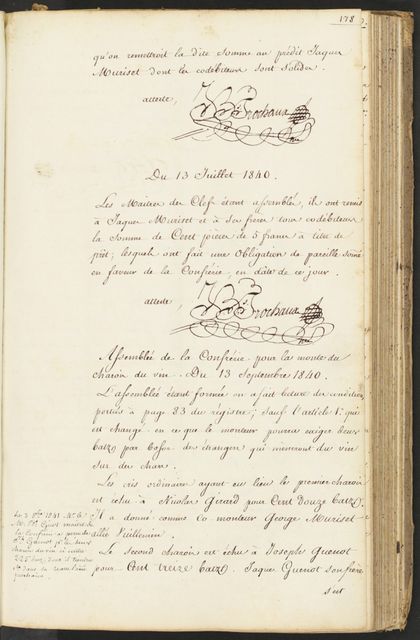 178
qu'on remettroit la dite Somme au prédit Jaques
Muriset dont les codébiteurs sont solides.
atteste,
Frochaux
Du 13 Juillet 1840.
Les Maitres des Clefs étant assemblés, ils ont remis
à Jaques Muriset et à ses frères tous codébiteurs
la Somme de Cent pièces de 5 francs à titre de
prêt, lesquels ont fait une Obligation de pareille somme
en faveur de la Confrérie, en date de ce jour.
atteste,
Frochaux
Assemblée de la Confrérie pour la monte du
charoi du vin. Du 13 Septembre 1840.
L'assemblée étant formée on a fait lecture des conditions
portées à page 83 du régistre; sauf l'article 1er qui
est changé en ce que le monteur pourra exiger deux
batz par bosse des étrangers qui mèneront du vin
sur des chars.
Les cris ordinaires ayant eu lieu le premier charoi
est échu à Nicolas Girard pour Cent douze batz.
Il a donné comme co-monteur George Muriset
allié Vuillemin.
Le Second charoi est échu à Joseph Guenot
pour Cent treize batz. Jaque Guenot son frère
est